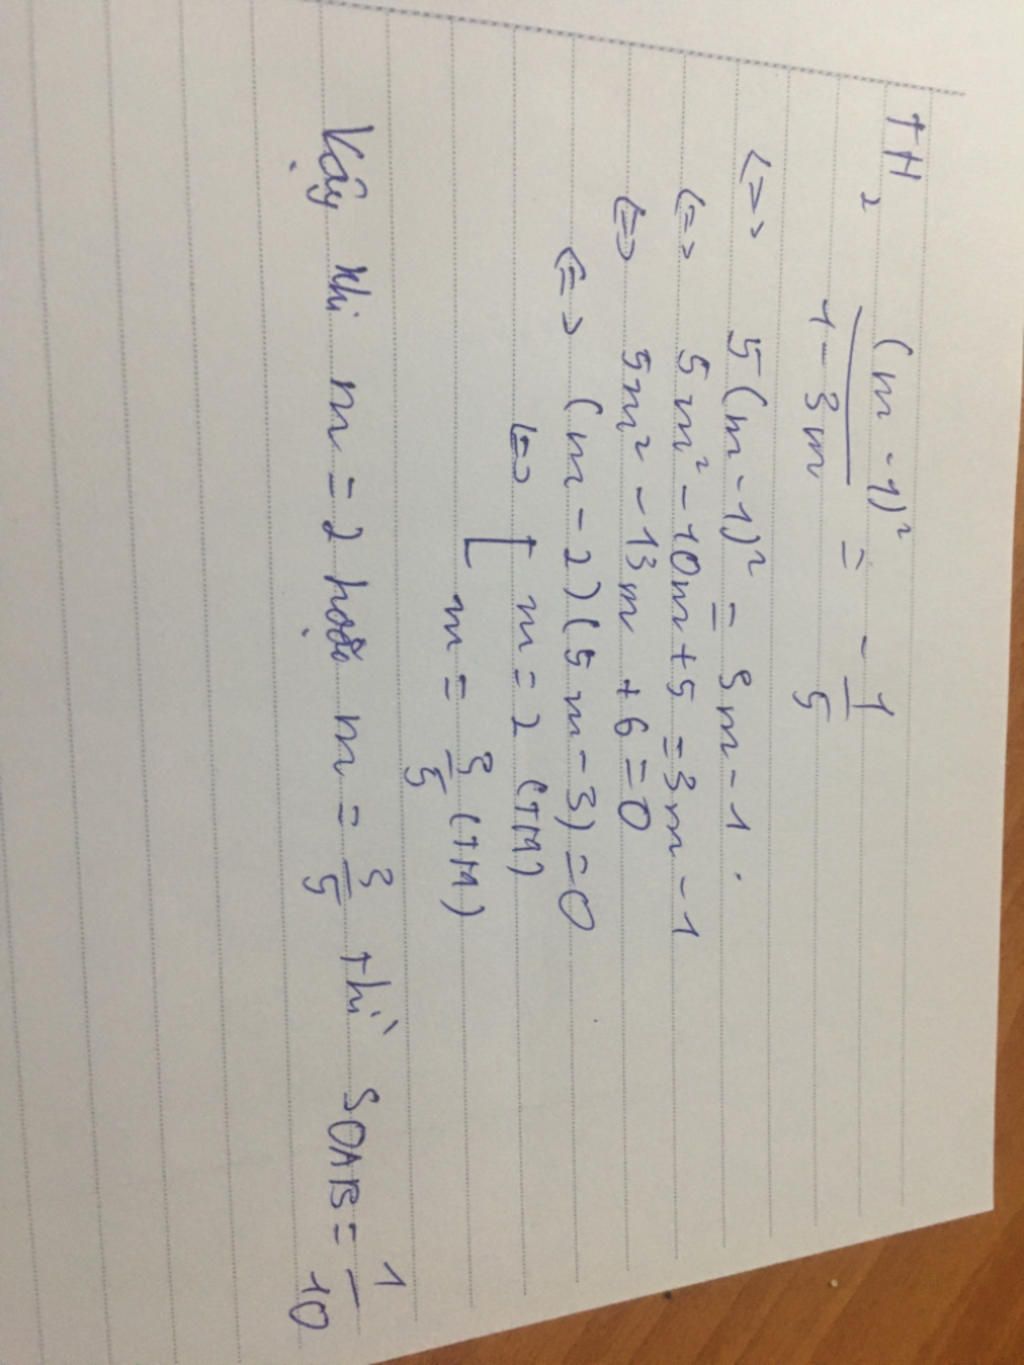 TH₂ (m - 1)² / (1 - 3m) = - 1/5
<=> 5(m - 1)² = 3m - 1.
<=> 5m² - 10m + 5 = 3m - 1
<=> 5m² - 13m + 6 = 0
<=> (m - 2)(5m - 3) = 0
<=> [ m = 2 (TM)
m = 3/5 (TM)
Vậy khi m = 2 hoặc m = 3/5 thì SOAB = 1/10